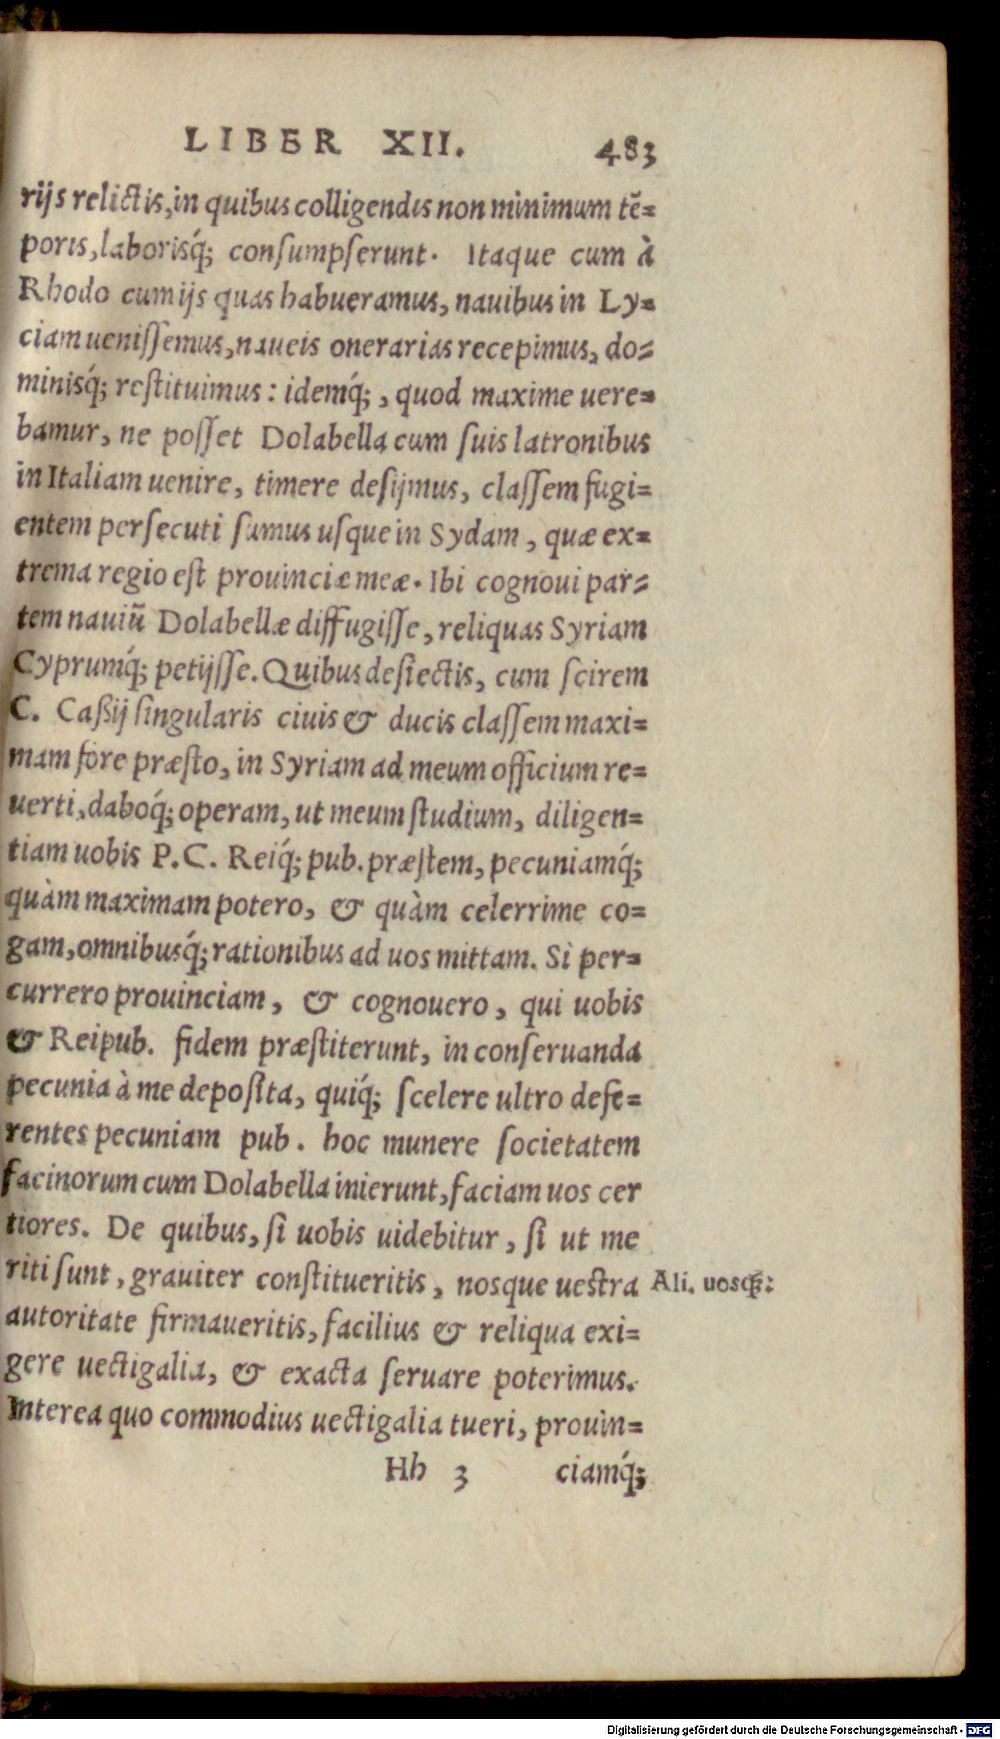 LIBER XII. 483
rijs relictis, in quibus colligendis non minimum tẽ=
poris, laborisq́; consumpserunt. Itaque cum à
Rhodo cum ijs quas habueramus, nauibus in Ly=
ciam uenissemus, naueis onerarias recepimus, do=
minisq́; restituimus: idemq́;, quod maxime uere=
bamur, ne posset Dolabella cum suis latronibus
in Italiam uenire, timere desijmus, classem fugi=
entem persecuti sumus usque in Sydam, quæ ex=
trema regio est prouinciæ meæ. Ibi cognoui par=
tem nauiũ Dolabellæ diffugisse, reliquas Syriam
Cyprumq́; petijsse. Quibus desiectis, cum scirem
C. Caßij singularis ciuis & ducis classem maxi=
mam fore præsto, in Syriam ad meum officium re=
uerti, daboq́; operam, ut meum studium, diligen=
tiam uobis P.C. Reiq́; pub. præstem, pecuniamq́;
quàm maximam potero, & quàm celerrime co=
gam, omnibusq́; rationibus ad uos mittam. Si per=
currero prouinciam, & cognouero, qui uobis
& Reipub. fidem præstiterunt, in conseruanda
pecunia à me deposita, quiq́; scelere ultro defe=
rentes pecuniam pub. hoc munere societatem
facinorum cum Dolabella inierunt, faciam uos cer
tiores. De quibus, si uobis uidebitur, si ut me
riti sunt, grauiter constitueritis, nosque uestra Ali. uosq́;:
autoritate firmaueritis, facilius & reliqua exi=
gere uectigalia, & exacta seruare poterimus.
Interea quo commodius uectigalia tueri, prouin=
Hh 3 ciamq́;
Digitalisierung gefördert durch die Deutsche Forschungsgemeinschaft - DFG